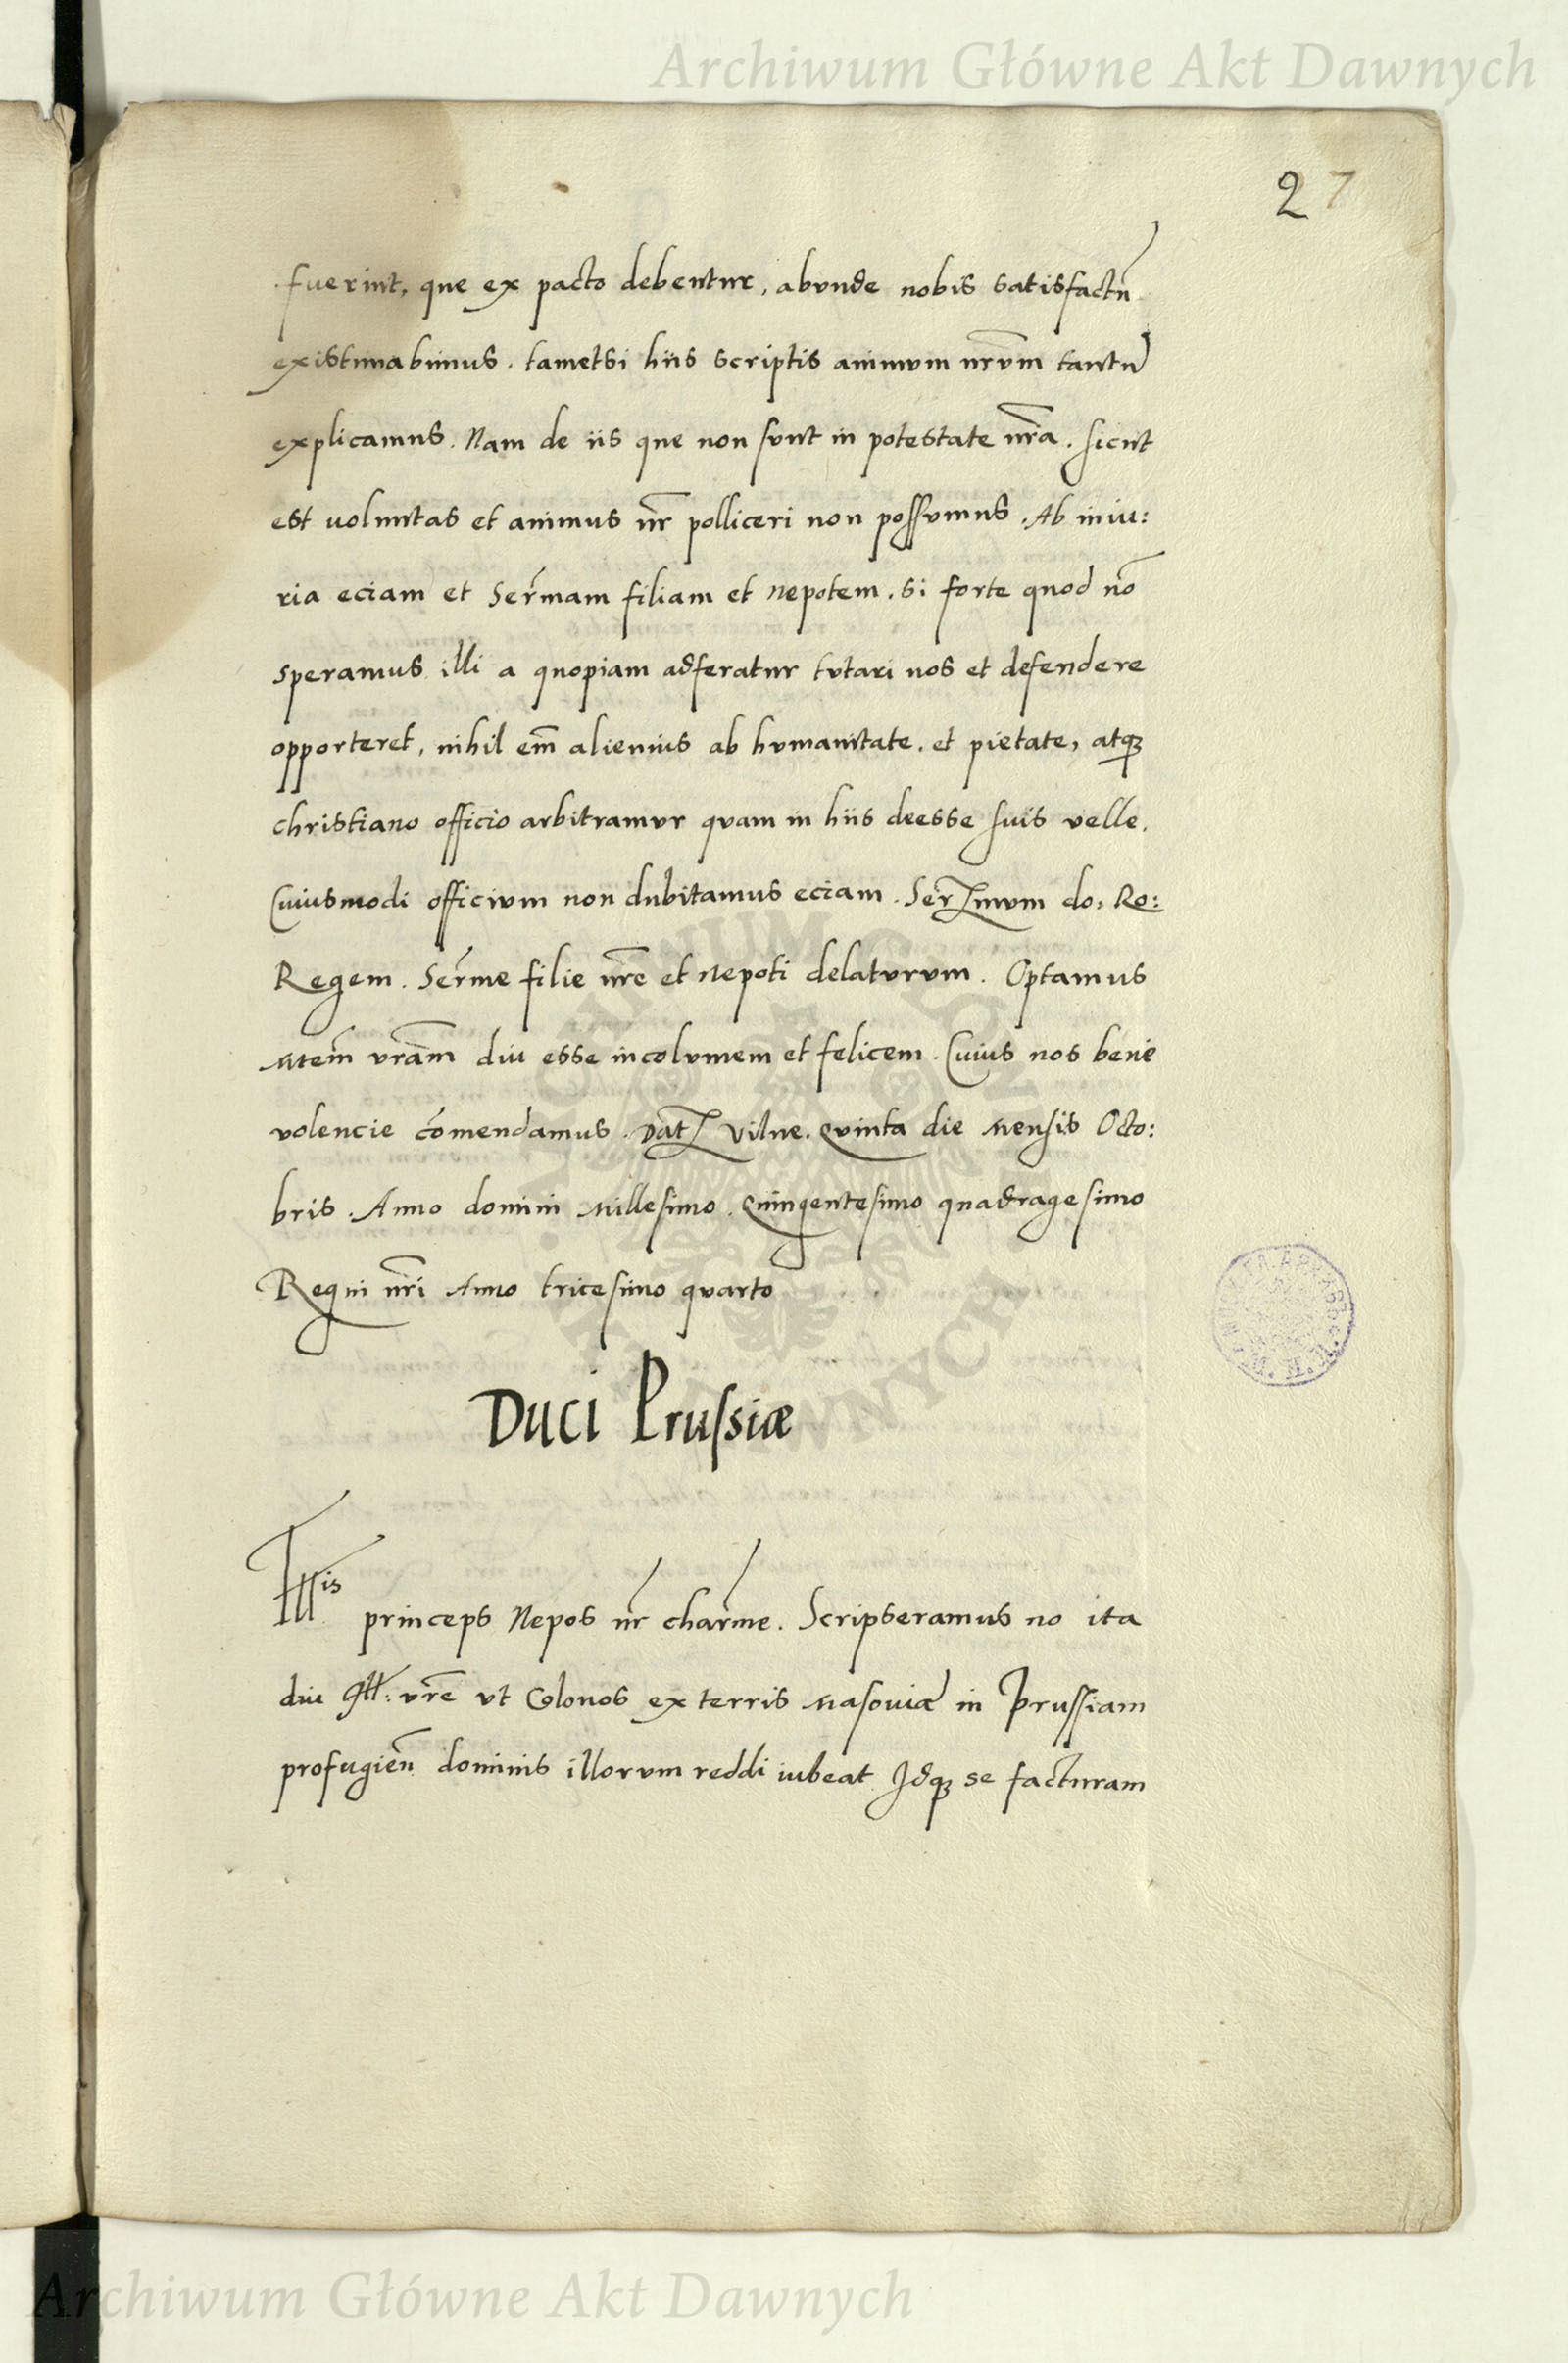 Archiwum Główne Akt Dawnych
27
fuerint, que ex pacto debentur, abunde nobis satisfactū
existimabimus. tametsi hiis scriptis animum nrūm tantū
explicamus. Nam de iis que non sunt in potestate nrā. sicut
est voluntas et animus nr̄ polliceri non possumus. Ab iniu:
ria eciam et Serm̄am filiam et Nepotem. si forte quod nō
speramus illi a quopiam adferatur tutari nos et defendere
opporteret, nihil em̄ alienius ab humanitate, et pietate, atqꝫ
christiano officio arbitramur quam in hiis deesse suis velle.
Cuiusmodi officium non dubitamus eciam. Serꝫmum do: Ro:
Regem. Serm̄e filie nrē et Nepoti delaturum. Optamus
Mtem̄ vrām diu esse incolumem et felicem. Cuius nos bene
volencie cōmendamus. Datꝫ Vilne. Quinta die Mensis Octo:
bris. Anno domini Millesimo. Quingentesimo quadragesimo
Regni nrī Anno tricesimo quarto
Duci Prussiæ
Illis princeps Nepos nr̄ charm̄e. Scripseramus no ita
diu Ill: vrē vt Colonos ex terris Masoviæ in Prussiam
profugien̄ dominis illorum reddi iubeat Idqꝫ se facturam
Archiwum Główne Akt Dawnych